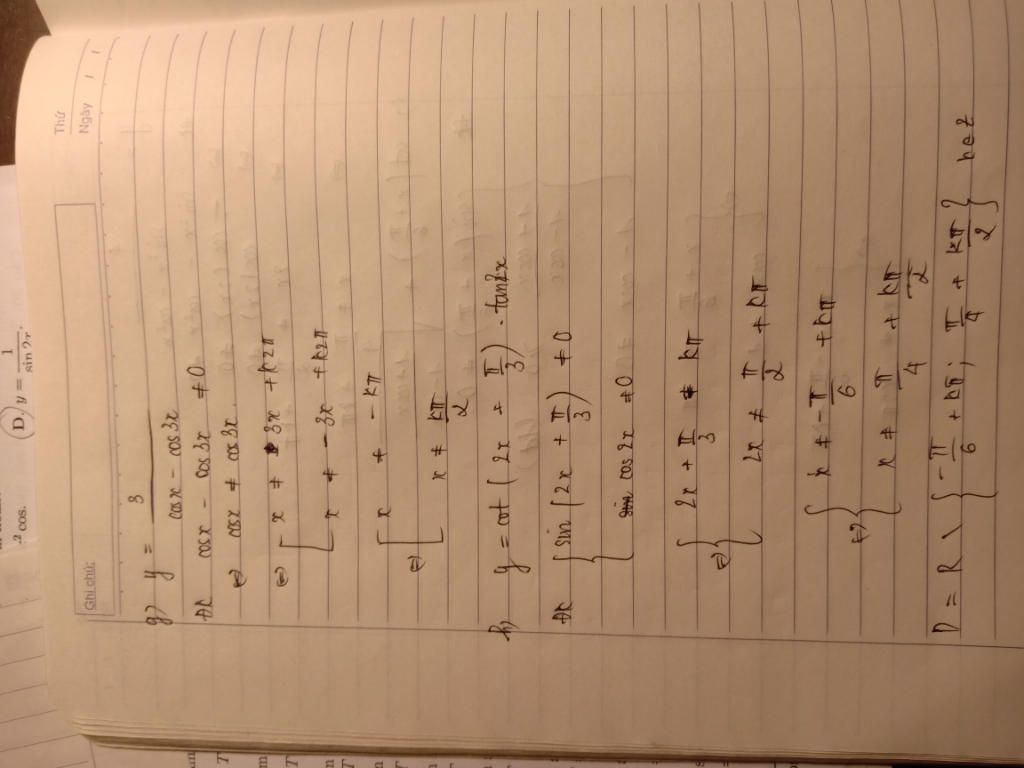 D) y = 1 / sin 2x.
Ghi chú:
Thứ
Ngày
g) y = 3 / (cosx - cos3x)
ĐK cosx - cos3x ≠ 0
⇔ cosx ≠ cos3x
⇔ [ x ≠ 3x + k2π
x ≠ - 3x + k2π
⇔ [ x ≠ - kπ
x ≠ kπ/2
h) y = cot (2x + π/3) . tan2x
ĐK { sin (2x + π/3) ≠ 0
cos2x ≠ 0
⇔ { 2x + π/3 ≠ kπ
2x ≠ π/2 + kπ
⇔ { x ≠ -π/6 + kπ
x ≠ π/4 + kπ/2
D = R \ { -π/6 + kπ ; π/4 + kπ/2 } k∈Z